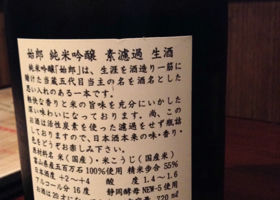 始郎 純米吟醸 素濾過 生酒
純米吟醸「始郎」は、生涯を酒造り一筋に
賭けた当蔵五代目当主の名を酒名とした
思い入れのある一本です。
軽快な香りと米の旨味を充分にいかした
深い味わいになっております。尚、この
お酒は活性炭素を使った濾過をせず瓶詰
しておりますので、日本酒本来の味・香り・
色をどうぞお楽しみ下さい。
原材料名／米(国産)・米こうじ(国産米)
富山県産五百万石100%使用 精米歩合55%
日本酒度 +2~+4 酸度 1.4~1.6
アルコール分 16度 静岡酵母NEW-5使用
720ml